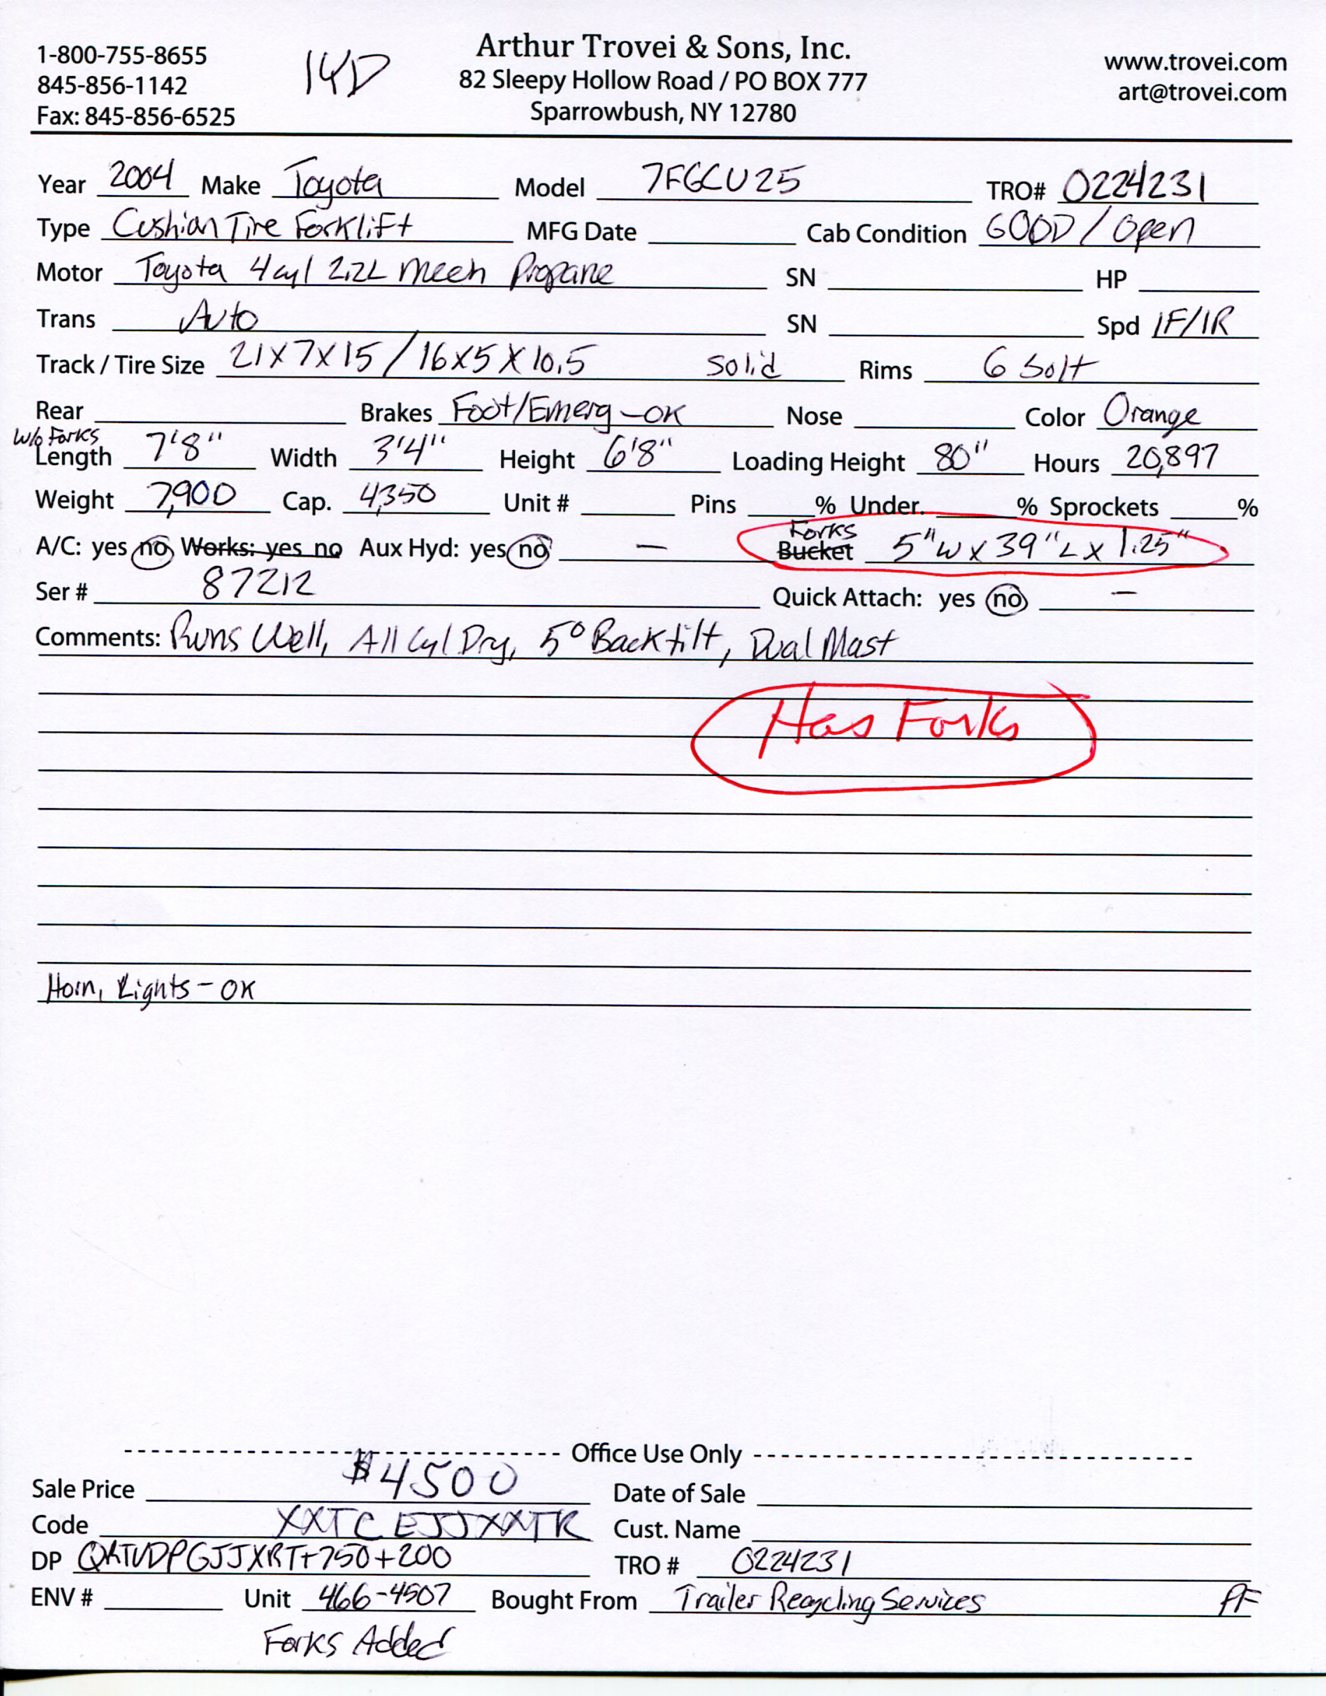 1-800-755-8655
845-856-1142
Fax: 845-856-6525
14D
Arthur Trovei & Sons, Inc.
82 Sleepy Hollow Road / PO BOX 777
Sparrowbush, NY 12780
www.trovei.com
art@trovei.com
Year 2004 Make Toyota Model 7FGCU25 TRO# 0224231
Type Cushion Tire Forklift MFG Date Cab Condition GOOD / Open
Motor Toyota 4cyl 2.2L Mech Propane SN HP
Trans Auto SN Spd 1F/1R
Track / Tire Size 21X7X15 / 16X5X10.5 Solid Rims 6 Bolt
Rear Brakes Foot/Emerg-OK Nose Color Orange
w/o Forks
Length 7'8" Width 3'4" Height 6'8" Loading Height 80" Hours 20,897
Weight 7,900 Cap. 4,350 Unit # Pins % Under. % Sprockets %
Forks
A/C: yes no Works: yes no Aux Hyd: yes no — Bucket 5"W X 39"L X 1.25"
Ser # 87212 Quick Attach: yes no —
Comments: Runs Well, All Cyl Dry, 5° Back tilt, Dual Mast
Has Forks
Horn, Lights - OK
Office Use Only
Sale Price $4500 Date of Sale
Code XXTCEJJXXTR Cust. Name
DP +750+200 TRO # 0224231
ENV # Unit 466-4507 Bought From Trailer Recycling Services
Forks Added